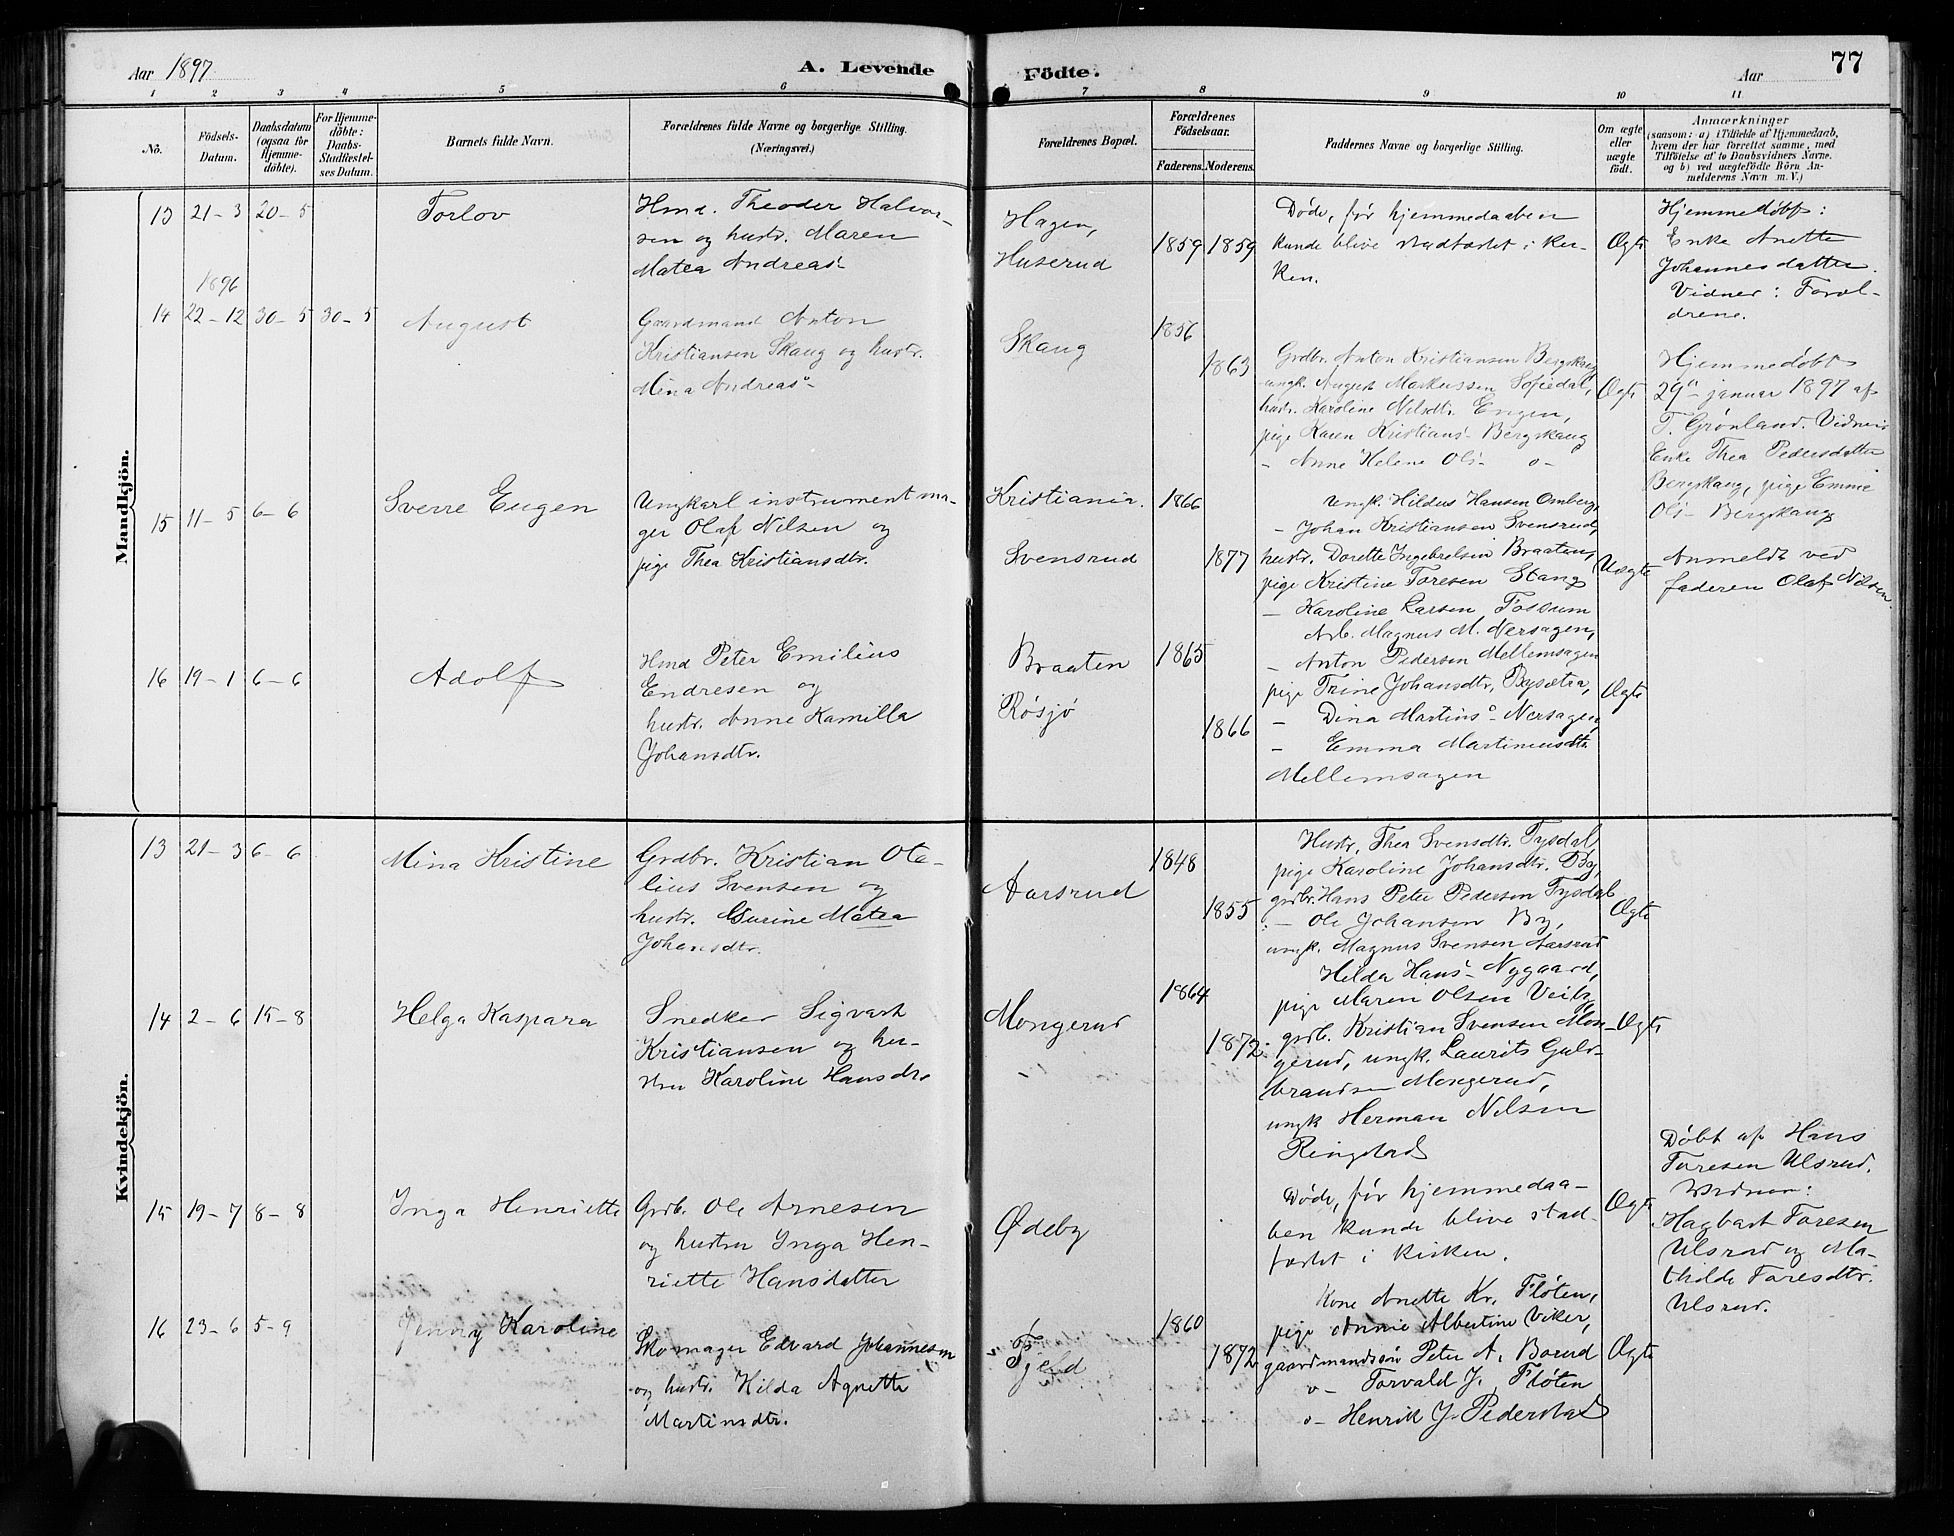 Aar 1897
A. Levende
Födte.
Aar
77
1 2 3 4 5 6 7 8 9 10 11
No.
Födsels-
Datum.
Daabsdatum
(ogsaa for
Hjemme-
döbte).
For Hjemme-
döbte:
Daabs-
Stadfæstel-
ses Datum.
Barnets fulde Navn.
Forældrenes fulde Navne og borgerlige Stilling.
(Næringsvei.)
Forældrenes Bopæl.
Forældrenes
Födselsaar.
Faderens. Moderens.
Faddernes Navne og borgerlige Stilling.
Om ægte
eller
uægte
födt.
Anmærkninger
(saasom: a) i Tilfælde af Hjemmedaab,
hvem der har forrettet samme, med
Tilföielse af to Daabsvidners Navne.
og b) ved uægtefödte Börn An-
melderens Navn m. V.)
Mandkjön.
13 21-3 20-5
Torlov
Hmd. Theodor Halvor-
sen og hustr. Maren
Matea Andreas-
Hagen,
Huserud
1859 1859
Døde, før hjemmedaaben
kunde blive stadfæstet i kir-
ken.
Ægte
Hjemmedøbt:
Enke Anette
Johannesdatter.
Vidner: Foræl-
drene.
1896
14 22-12 30-5 30-5
August
Gaardmand Anton
Kristiansen Skaug og hustr.
Mina Andreas-
Skaug
1856
1863
Grdbr. Anton Kristiansen Bergskaug
ungk. August Markussen Sofiedal,
hustr. Karoline Nilsdtr. Engen,
pige Karen Kristians- Bergskaug
- Anne Helene Ols- o-
Ægte
Hjemmedøbt
29n januar 1897 af
T. Grønland. Vidner:
Enke Thea Pedersdatter
Bergskaug, pige Emmie
Ols- Bergskaug
15 11-5 6-6
Sverre Eugen
Ungkarl instrumentma-
ger Olaf Nilsen og
pige Thea Kristiansdtr.
Kristiania.
Svensrud
1866
1877
Ungk. Hildus Hansen Omberg,
- Johan Kristiansen Svensrud,
hustr. Dorette Ingebretsen Braaten,
pige Kristine Toresen Stang
- Karoline Larsen, Fossum
Uægte
Anmeldt ved
faderen Olaf Nilsen.
16 19-1 6-6
Adolf
Hmd Peter Emilius
Endresen og
hustr. Anne Kamilla
Johansdtr.
Braaten
Røsjø
1865
1866
Arb. Magnus M. Nersagen,
- Anton Pedersen Mellemsagen
pige Trine Johansdtr, Bysætra,
- Dina Martins- Nersagen,
- Emma Martiniusdtr.
Mellemsagen
Ægte
Kvindekjön.
13 21-3 6-6
Mina Kristine
Grdbr. Kristian Ote-
lius Svensen og
hustr. Gurine Matea
Johansdtr.
Aarsrud
1848
1855
Hustr. Thea Svensdtr. Tysdal
pige Karoline Johansdtr. By,
grdbr. Hans Peter Pedersen Tysdal
- Ole Johansen By,
ungk. Magnus Svensen Aarsrud
Ægte
14 2-6 15-8
Helga Kaspara
Snedker Sigvart
Kristiansen og hu-
stru Karoline Hansdtr.
Mongerud
1864
1872
Hilda Hans- Nygaard,
pige Maren Olsen Veiby,
grdb. Kristian Svensen Mon-
gerud, ungk. Laurits Guld-
brandsen Mongerud,
ungk Herman Nilsen
Ringstad
Ægte
15 19-7 8-8
Inga Henriette
Grdb. Ole Arnesen
og hustru Inga Hen-
riette Hansdatter
Ødeby
Døde, før hjemmedaa-
ben kunde blive stad-
fæstet i kirken.
Ægte
Døbt af Hans
Toresen Ulsrud.
Vidner:
Hagbart Toresen
Ulsrud og Ma-
thilde Toresdtr.
Ulsrud.
16 23-6 5-9
Jenny Karoline
Skomager Edvard Johannesen
og hustr. Hilda Agnette
Martinsdtr.
Fjeld
1860
1872
Kone Anette Kr. Fløten,
pige Annie Albertine Viker,
gaardmandssøn Peter A. Borud
o- Torvald J. Fløten
o- Henrik J. Pederstad
Ægte